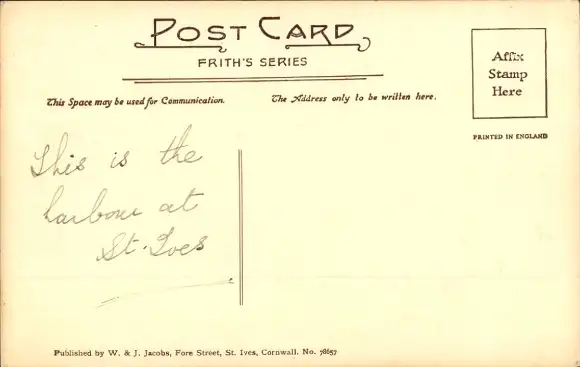 POST CARD
FRITH'S SERIES
This Space may be used for Communication.
The Address only to be written here.
Affix
Stamp
Here
PRINTED IN ENGLAND
This is the
harbour at
St. Ives
Published by W. & J. Jacobs, Fore Street, St. Ives, Cornwall. No. 78657